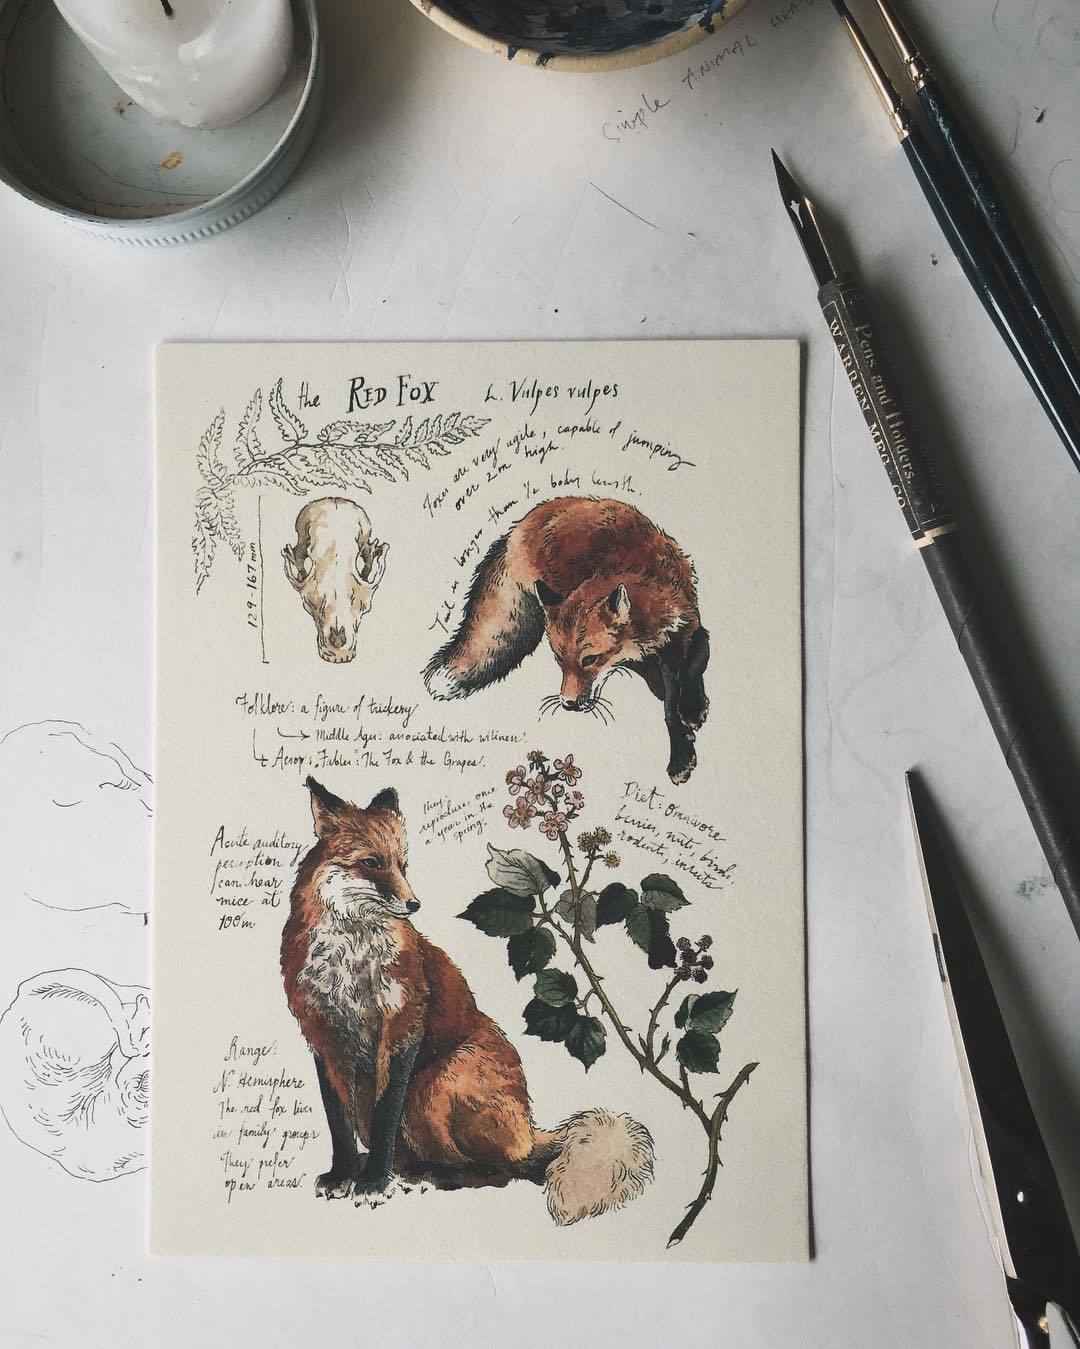 Simple ANIMAL HEA
Pens and Holders.
WARREN MFG. CO
the RED FOX L. Vulpes vulpes
Foxes are very agile, capable of jumping
over 2m high.
Tail is longer than 1/2 body length.
129-167 mm
Folklore: a figure of trickery
Middle Ages: associated with wiliness.
Aesop's "Fables": The Fox & the Grapes.
they
reproduce once
a year in the
spring.
Diet: Omnivore
berries, nuts, birds,
rodents, insects
Acute auditory
perception
can hear
mice at
100m
Range:
N. Hemisphere
The red fox lives
in family groups
They prefer
open areas.